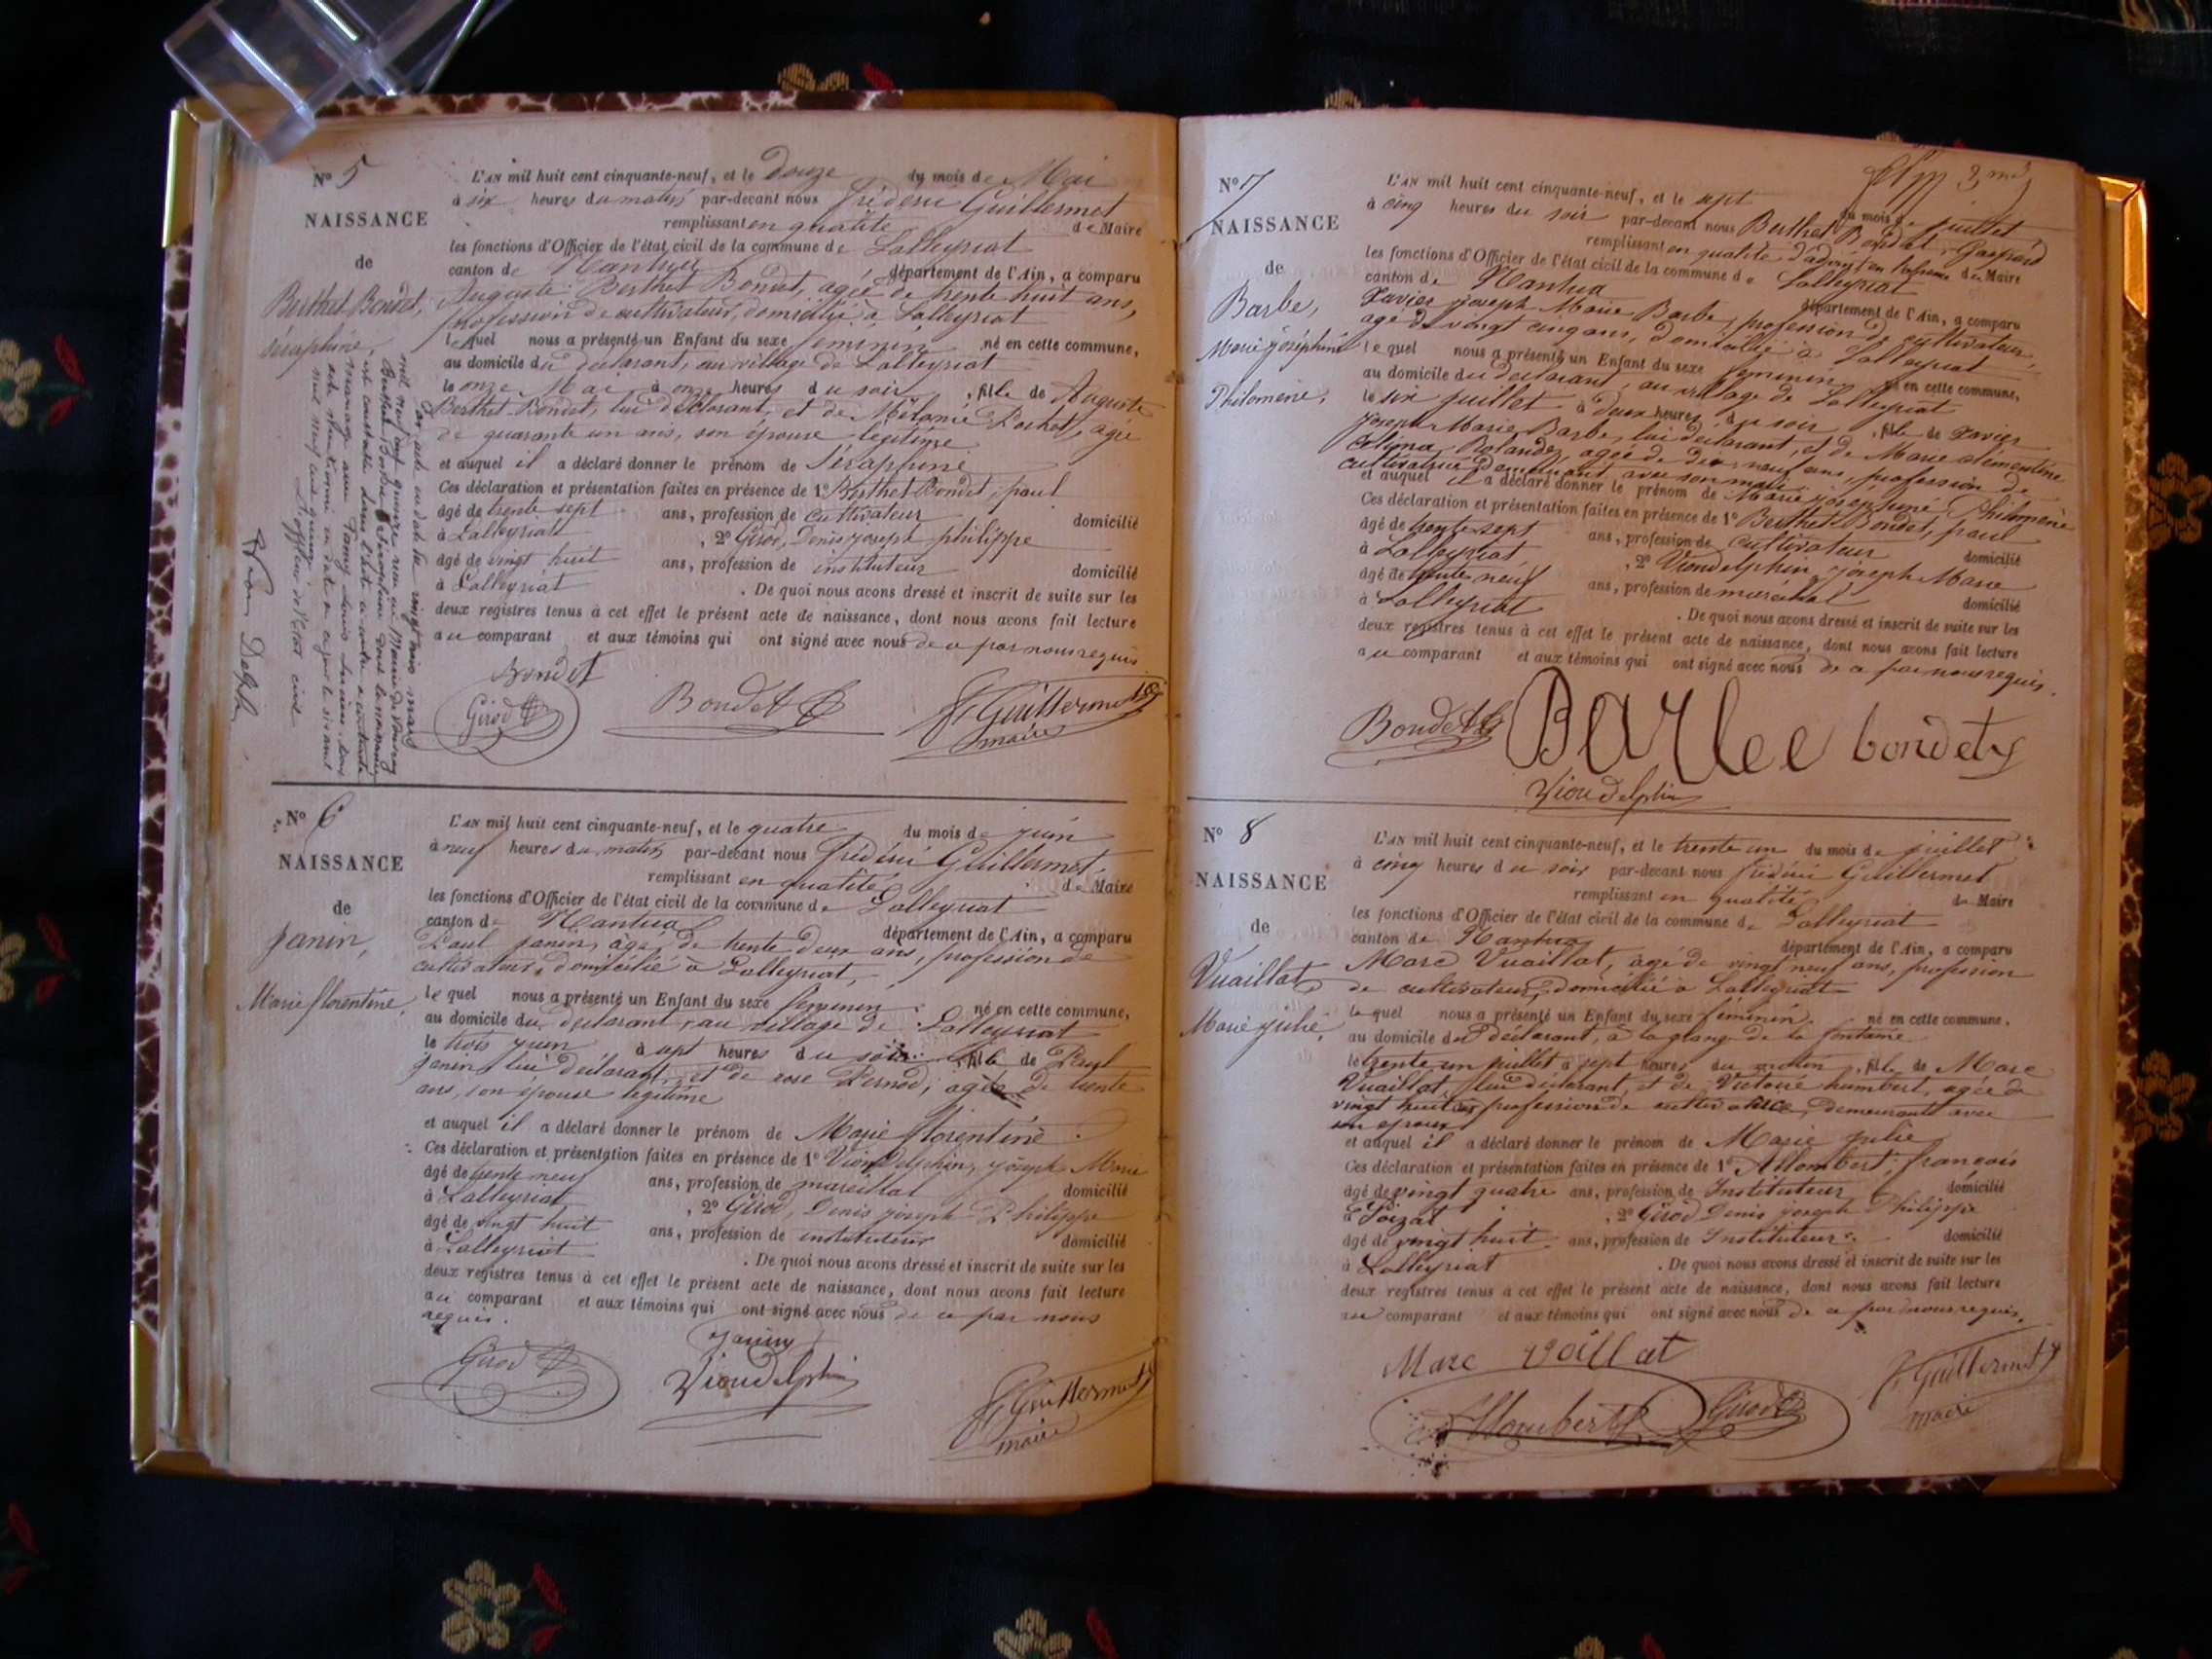 N° 5
NAISSANCE
de
Berthet Bondet,
séraphine,
L'AN mil huit cent cinquante-neuf, et le Douze du mois de Mai
à six heures du matin par-devant nous frédéric Guillermet
remplissant en qualité de Maire
les fonctions d'Officier de l'état civil de la commune de Lalleyriat
canton de Nantua département de l'Ain, a comparu
Auguste Berthet Bondet, agée de trente huit ans,
profession de cultivateur, domicilié à Lalleyriat
lequel nous a présenté un Enfant du sexe féminin né en cette commune,
au domicile du déclarant, au village de Lalleyriat
le onze Mai à onze heures du soir, fille de Auguste
Berthet Bondet, lui déclarant, et de Mélanie Pochet, agée
de quarante un ans, son épouse légitime
et auquel il a déclaré donner le prénom de Séraphine
Ces déclaration et présentation faites en présence de 1° Berthet Bondet, paul
âgé de trente sept ans, profession de cultivateur domicilié
à Lalleyriat, 2° Girod, Denis joseph philippe
âgé de vingt huit ans, profession de instituteur domicilié
à Lalleyriat. De quoi nous avons dressé et inscrit de suite sur les
deux registres tenus à cet effet le présent acte de naissance, dont nous avons fait lecture
au comparant et aux témoins qui ont signé avec nous de ce par nous requis
Bondet
Girod
Bondet
f Guillermet
maire
Par acte en date du vingt trois mars
mil neuf cent quinze reçu en Mairie de
Berthet Bondet Séraphine dont la naissance
est constatée dans l'acte ci-contre a contracté
mariage avec
acte mentionné
mil neuf cent quinze
L'officier de l'état civil
N° 6
NAISSANCE
de
janin,
Marie florentine,
L'AN mil huit cent cinquante-neuf, et le quatre du mois de juin
à neuf heures du matin par-devant nous frédéric Guillermet,
remplissant en qualité de Maire
les fonctions d'Officier de l'état civil de la commune de Lalleyriat
canton de Nantua département de l'Ain, a comparu
Paul janin, âgé de trente deux ans, profession de
cultivateur, domicilié à Lalleyriat,
lequel nous a présenté un Enfant du sexe féminin né en cette commune,
au domicile du déclarant, au village de Lalleyriat
le trois juin à sept heures du soir fille de Paul
janin lui déclarant, et de rose Pernod, agée de trente
ans, son épouse légitime
et auquel il a déclaré donner le prénom de Marie florentine
Ces déclaration et présentation faites en présence de 1° Viondelphin, joseph Marie
âgé de trente neuf ans, profession de domicilié
à Lalleyriat, 2° Girod, Denis joseph Philippe
âgé de vingt huit ans, profession de instituteur domicilié
à Lalleyriat. De quoi nous avons dressé et inscrit de suite sur les
deux registres tenus à cet effet le présent acte de naissance, dont nous avons fait lecture
au comparant et aux témoins qui ont signé avec nous de ce par nous
requis.
Girod
janin
Viondelphin
f Guillermet
maire
N° 7
NAISSANCE
de
Barbe,
Marie joséphine
Philomène,
L'AN mil huit cent cinquante-neuf, et le sept du mois de juillet
à cinq heures du soir par-devant nous Berthet Bondet, Gaspard
remplissant en qualité d'adjoint en l'absence du Maire
les fonctions d'Officier de l'état civil de la commune de Lalleyriat
canton de Nantua département de l'Ain, a comparu
Xavier joseph Marie Barbe, profession de cultivateur,
agé de vingt cinq ans, domicilié à Lalleyriat
lequel nous a présenté un Enfant du sexe féminin né en cette commune,
au domicile du déclarant, au village de Lalleyriat
le six juillet à deux heures du soir, fille de Xavier
joseph Marie Barbe, lui déclarant, et de Marie clémentine
Rolande, agée de dix neuf ans, profession de
cultivatrice demeurant avec son mari
et auquel il a déclaré donner le prénom de Marie joséphine Philomène
Ces déclaration et présentation faites en présence de 1° Berthet Bondet, paul
âgé de trente sept ans, profession de cultivateur domicilié
à Lalleyriat, 2° Viondelphin, joseph Marie
âgé de trente neuf ans, profession de maréchal domicilié
à Lalleyriat. De quoi nous avons dressé et inscrit de suite sur les
deux registres tenus à cet effet le présent acte de naissance, dont nous avons fait lecture
au comparant et aux témoins qui ont signé avec nous de ce par nous requis.
Bondet
Barbe
bondet
Viondelphin
N° 8
NAISSANCE
de
Vuaillat,
Marie julie,
L'AN mil huit cent cinquante-neuf, et le trente un du mois de juillet
à cinq heures du soir par-devant nous frédéric Guillermet
remplissant en qualité de Maire
les fonctions d'Officier de l'état civil de la commune de Lalleyriat
canton de Nantua département de l'Ain, a comparu
Marc Vuaillat, agé de vingt neuf ans, profession
de cultivateur, domicilié à Lalleyriat
lequel nous a présenté un Enfant du sexe féminin né en cette commune,
au domicile du déclarant, à la grange de la fontaine
le trente un juillet à sept heures du matin, fille de Marc
Vuaillat, lui déclarant, et de Victoire humbert, agée de
vingt huit ans profession de cultivatrice, demeurant avec
son époux
et auquel il a déclaré donner le prénom de Marie julie
Ces déclaration et présentation faites en présence de 1° Allombert, françois
âgé de vingt quatre ans, profession de Instituteur domicilié
à Poizat, 2° Girod Denis joseph Philippe
âgé de vingt huit ans, profession de Instituteur domicilié
à Lalleyriat. De quoi nous avons dressé et inscrit de suite sur les
deux registres tenus à cet effet le présent acte de naissance, dont nous avons fait lecture
au comparant et aux témoins qui ont signé avec nous de ce par nous requis.
Marc voillat
Allombert
Girod
f Guillermet
maire